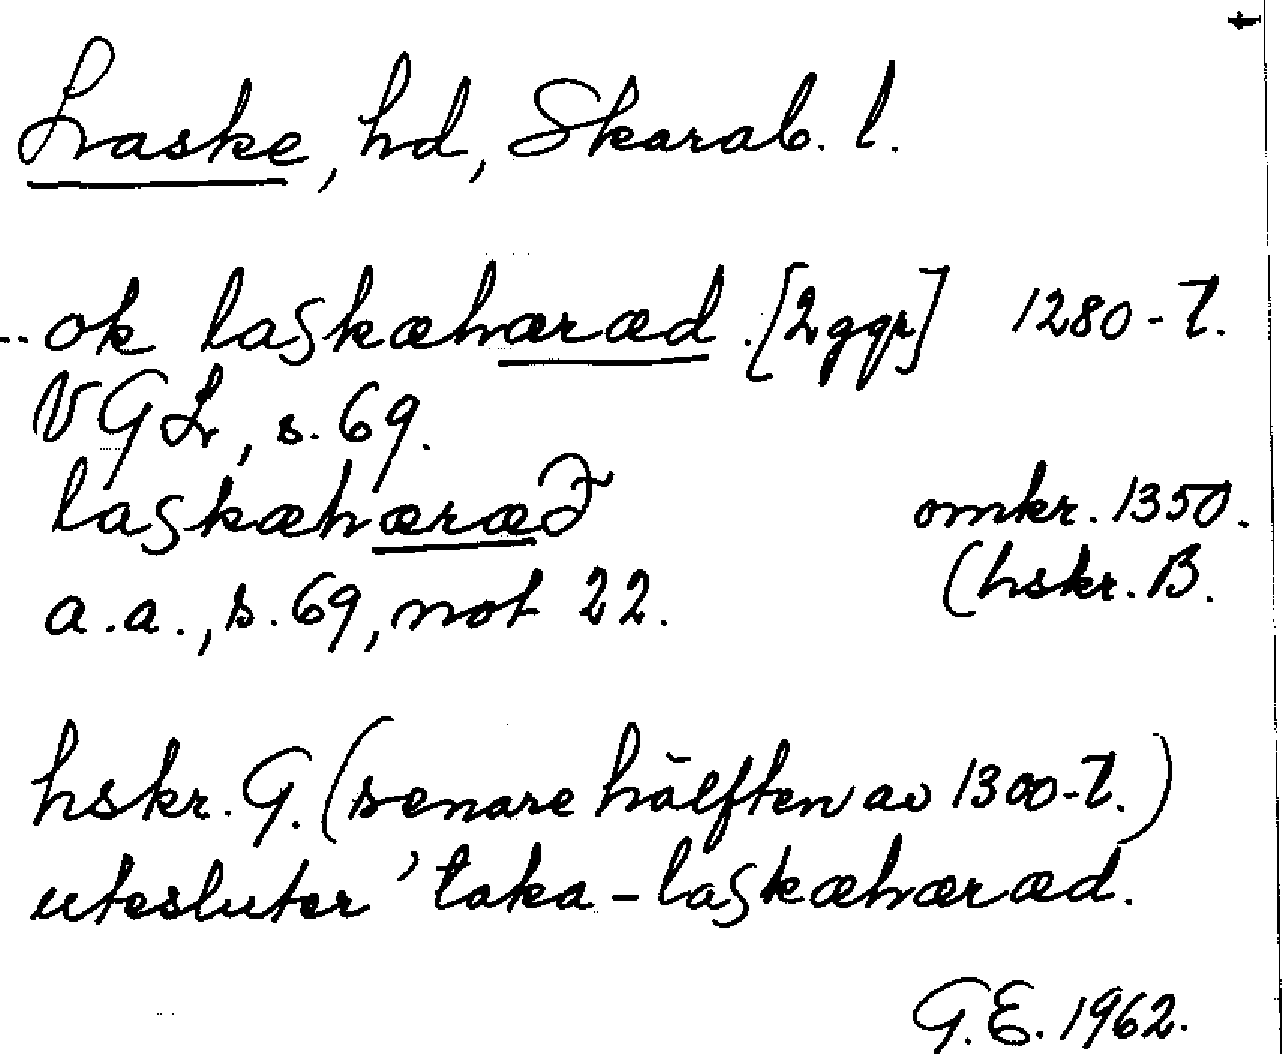 Laske, hd, Skarab. l.
..ok laskæhæræd. [2 ggr] 1280-t.
VGL, s. 69.
laskæhæræð omkr. 1350.
a.a., s. 69, not 22. (hskr. B.
hskr. G. (senare hälften av 1300-t.)
utesluter 'taka - laskæhæræd.
G.E. 1962.